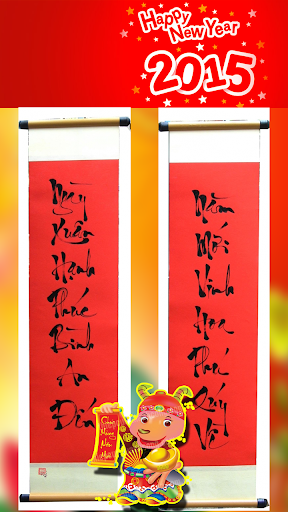 Happy
New Year
2015
Ngày
Xuân
Hạnh
Phúc
Bình
An
Đến
Năm
Mới
Vinh
Hoa
Phú
Quý
Về
Cung
Chúc